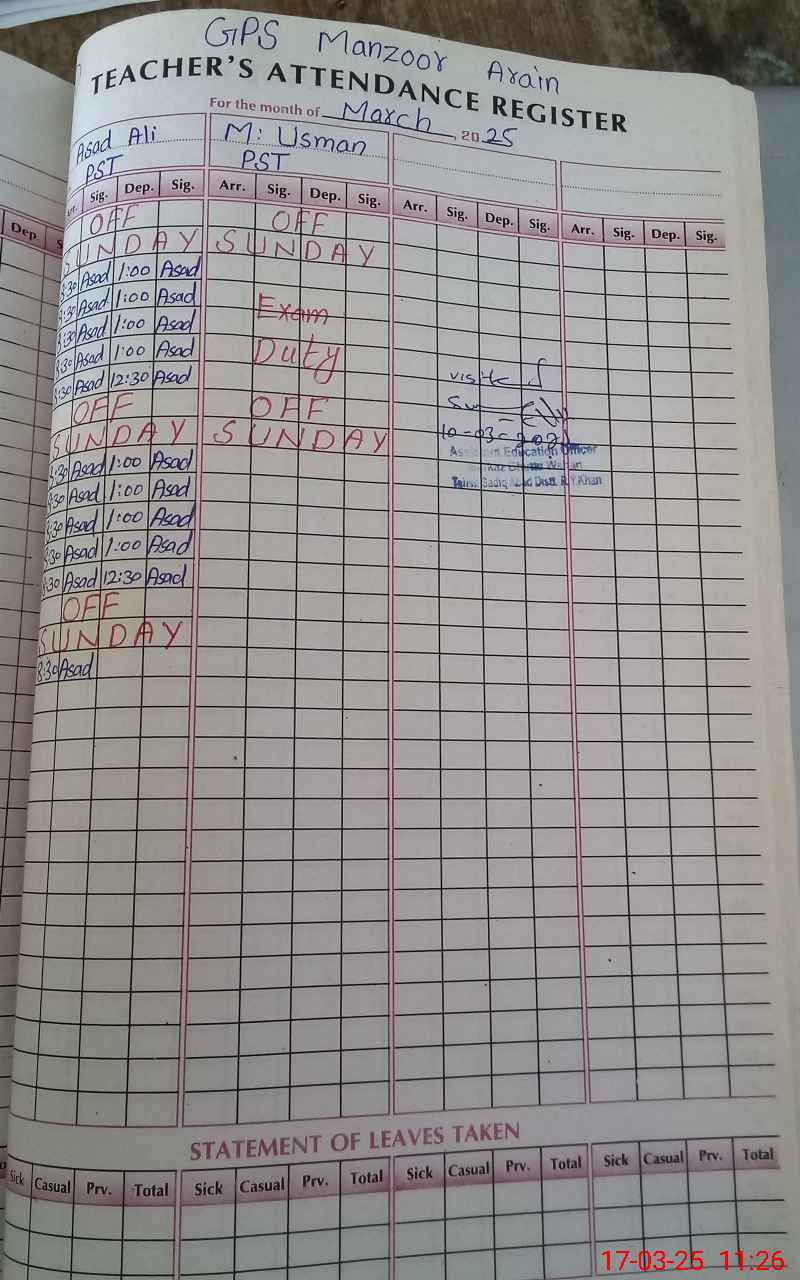 GPS Manzoor Arain
TEACHER'S ATTENDANCE REGISTER
For the month of March, 2025
Asad Ali M: Usman
PST PST
Arr. Sig. Dep. Sig. Arr. Sig. Dep. Sig. Arr. Sig. Dep. Sig. Arr. Sig. Dep. Sig.
Dep.
OFF OFF
SUNDAY SUNDAY
8:30 Asad 1:00 Asad
8:30 Asad 1:00 Asad Exam
8:30 Asad 1:00 Asad
8:30 Asad 1:00 Asad Duty
8:30 Asad 12:30 Asad visit
OFF OFF
SUNDAY SUNDAY 10-03-2025
8:30 Asad 1:00 Asad Assistant Education Officer
8:30 Asad 1:00 Asad Sadiq Abad Distt. R.Y.Khan
8:30 Asad 1:00 Asad
8:30 Asad 1:00 Asad
8:30 Asad 12:30 Asad
OFF
SUNDAY
8:30 Asad
STATEMENT OF LEAVES TAKEN
Sick Casual Prv. Total Sick Casual Prv. Total Sick Casual Prv. Total Sick Casual Prv. Total
17-03-25 11:26